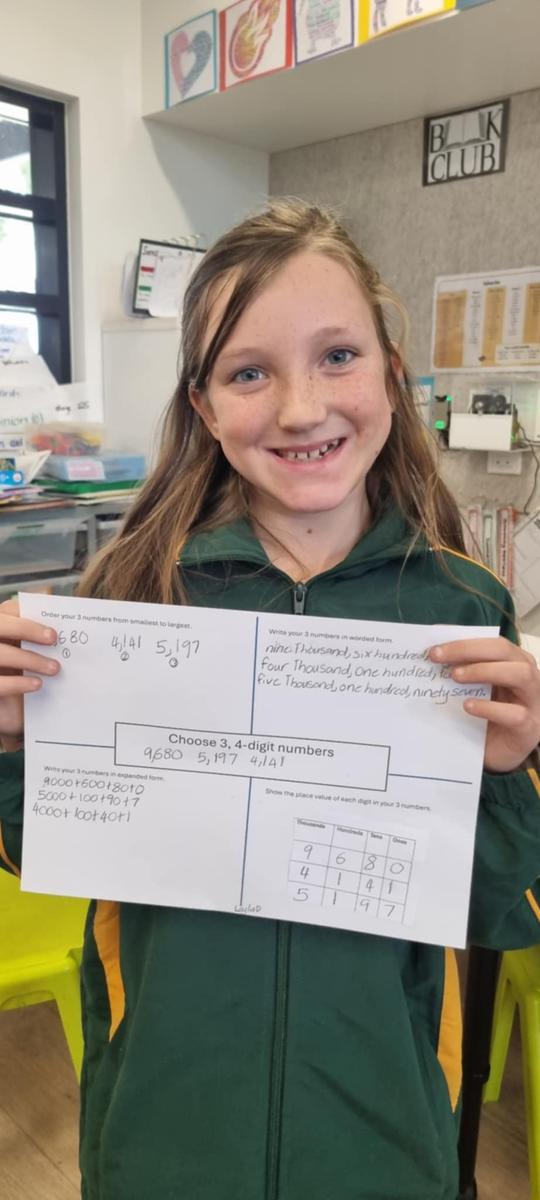 B K
CLUB
Order your 3 numbers from smallest to largest.
680 4,141 5,197
① ② ③
Write your 3 numbers in worded form.
nine Thousand, six hundred,
four Thousand, one hundred,
five Thousand, one hundred, ninety seven.
Choose 3, 4-digit numbers
9,680 5,197 4,141
Write your 3 numbers in expanded form.
9000+600+80+0
5000+100+90+7
4000+100+40+1
Show the place value of each digit in your 3 numbers.
Thousands Hundreds Tens Ones
9 6 8 0
4 1 4 1
5 1 9 7